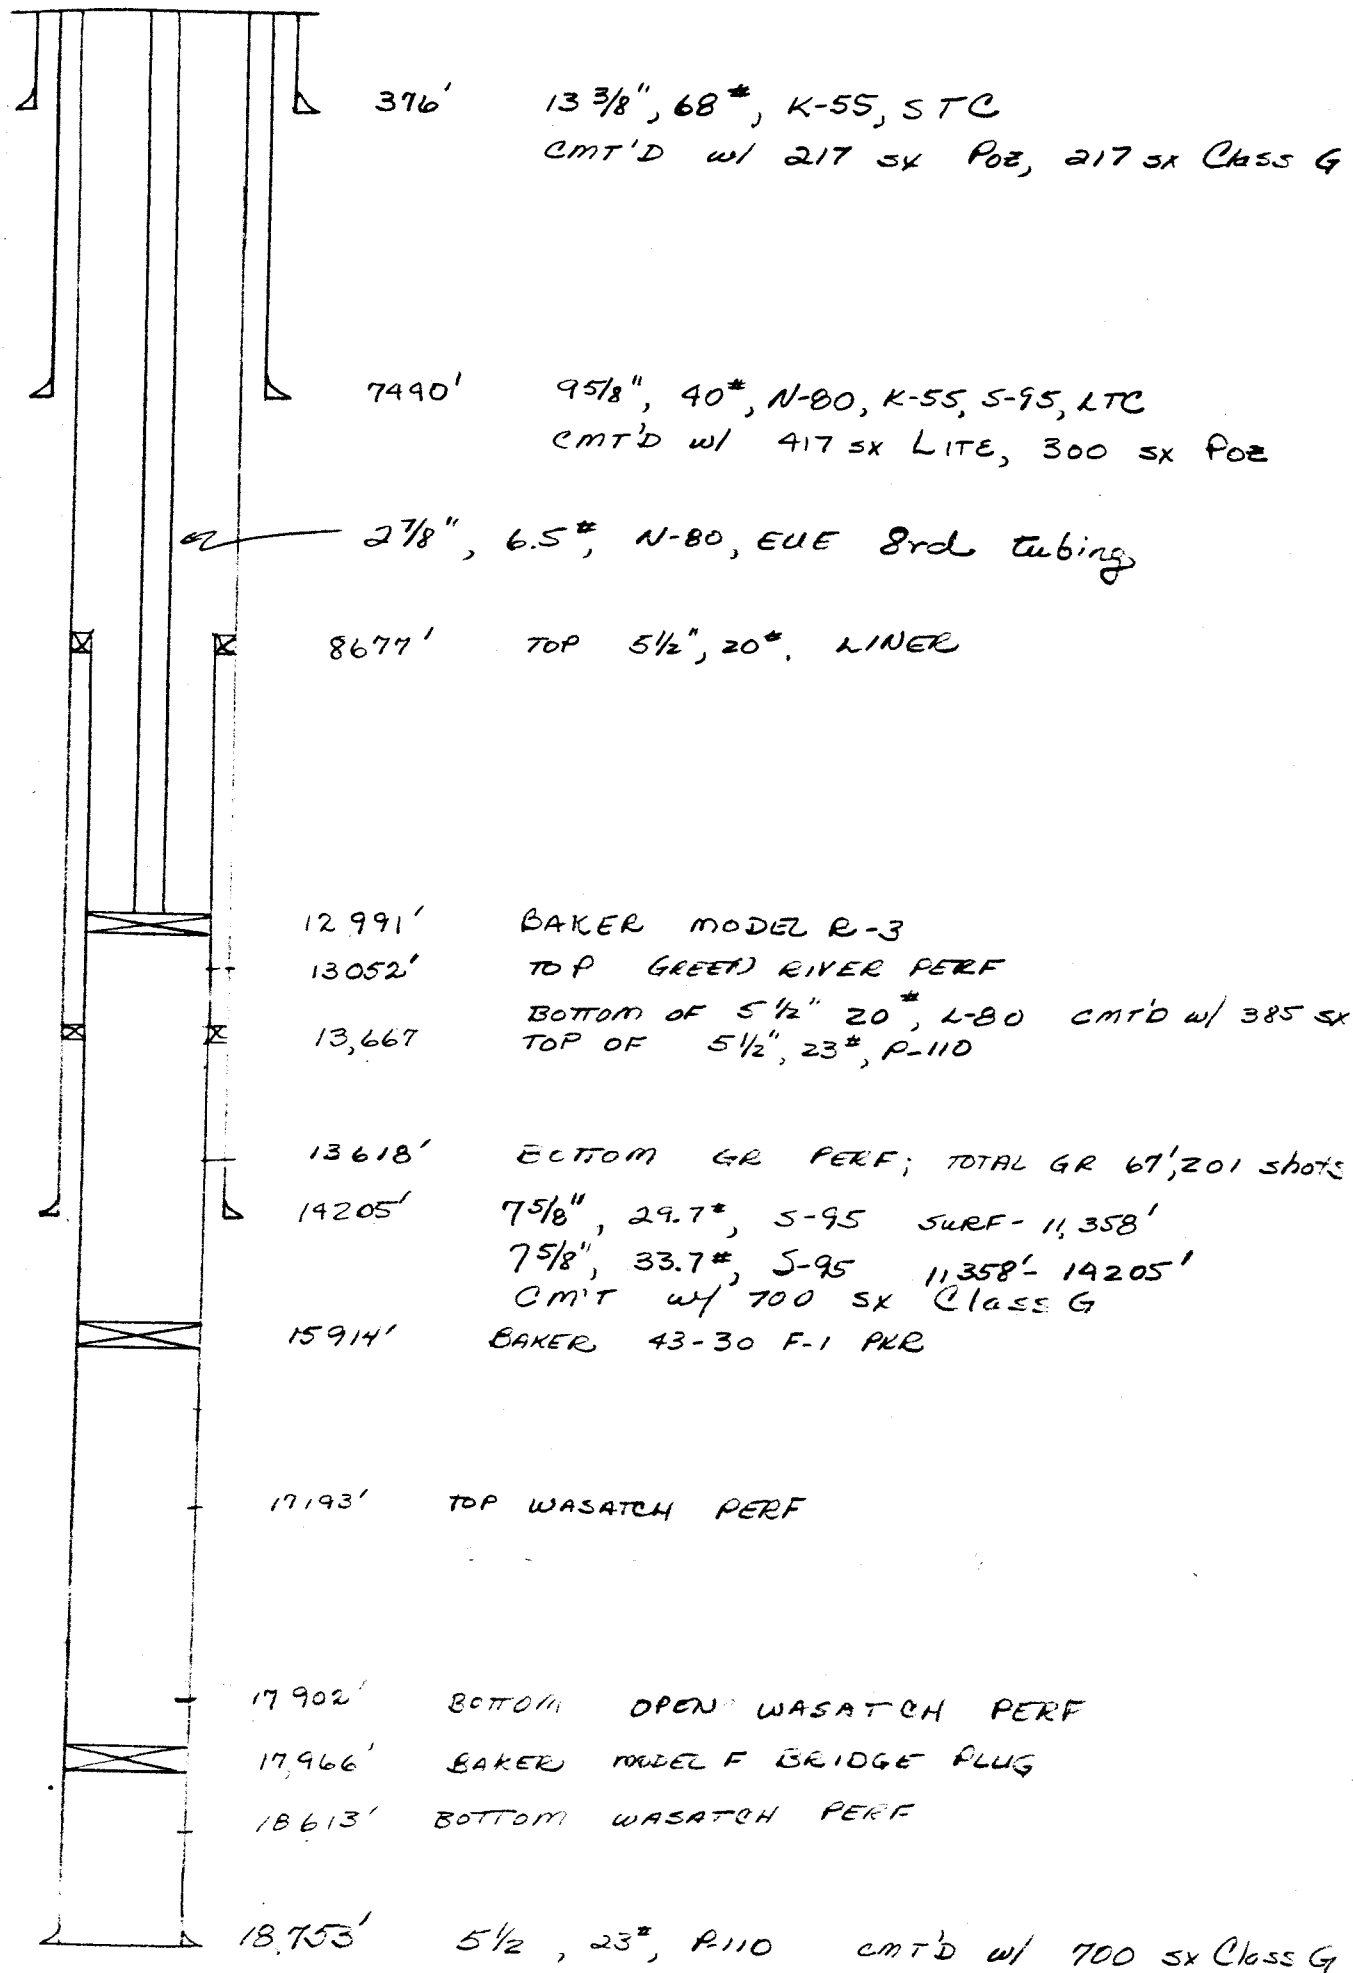 376' 13 3/8", 68#, K-55, STC
CMT'D w/ 217 sx Poz, 217 sx Class G
7490' 9 5/8", 40#, N-80, K-55, S-95, LTC
CMT'D w/ 417 sx LITE, 300 sx Poz
2 7/8", 6.5#, N-80, EUE 8rd tubing
8677' TOP 5 1/2", 20#. LINER
12 991' BAKER MODEL R-3
13052' TOP GREEN RIVER PERF
BOTTOM OF 5 1/2" 20#, L-80 CMT'D w/ 385 sx
13,667 TOP OF 5 1/2", 23#, P-110
13618' BOTTOM GR PERF; TOTAL GR 67', 201 shots
14205' 7 5/8", 29.7#, S-95 SURF - 11,358'
7 5/8", 33.7#, S-95 11,358' - 14205'
CM'T w/ 700 sx Class G
15914' BAKER 43-30 F-1 PKR
17193' TOP WASATCH PERF
17902' BOTTOM OPEN WASATCH PERF
17,966' BAKER MODEL F BRIDGE PLUG
18613' BOTTOM WASATCH PERF
18,753' 5 1/2, 23#, P-110 CMT'D w/ 700 sx Class G